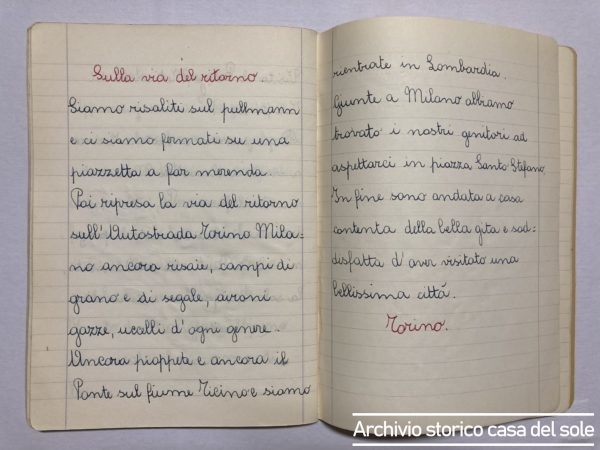 Sulla via del ritorno.
Siamo risaliti sul pullmann
e ci siamo fermati su una
piazzetta a far merenda.
Poi ripresa la via del ritorno
sull'Autostrada Torino Mila=
no ancora risaie, campi di
grano e di segale, aironi
gazze, ucelli d'ogni genere.
Ancora pioppete e ancora il
Ponte sul fiume Ticino e siamo
rientrate in Lombardia.
Giunte a Milano abbiamo
trovato i nostri genitori ad
aspettarci in piazza Santo Stefano.
In fine sono andata a casa
contenta della bella gita e sod=
disfatta d'aver visitato una
bellissima cittá.
Torino.
Archivio storico casa del sole